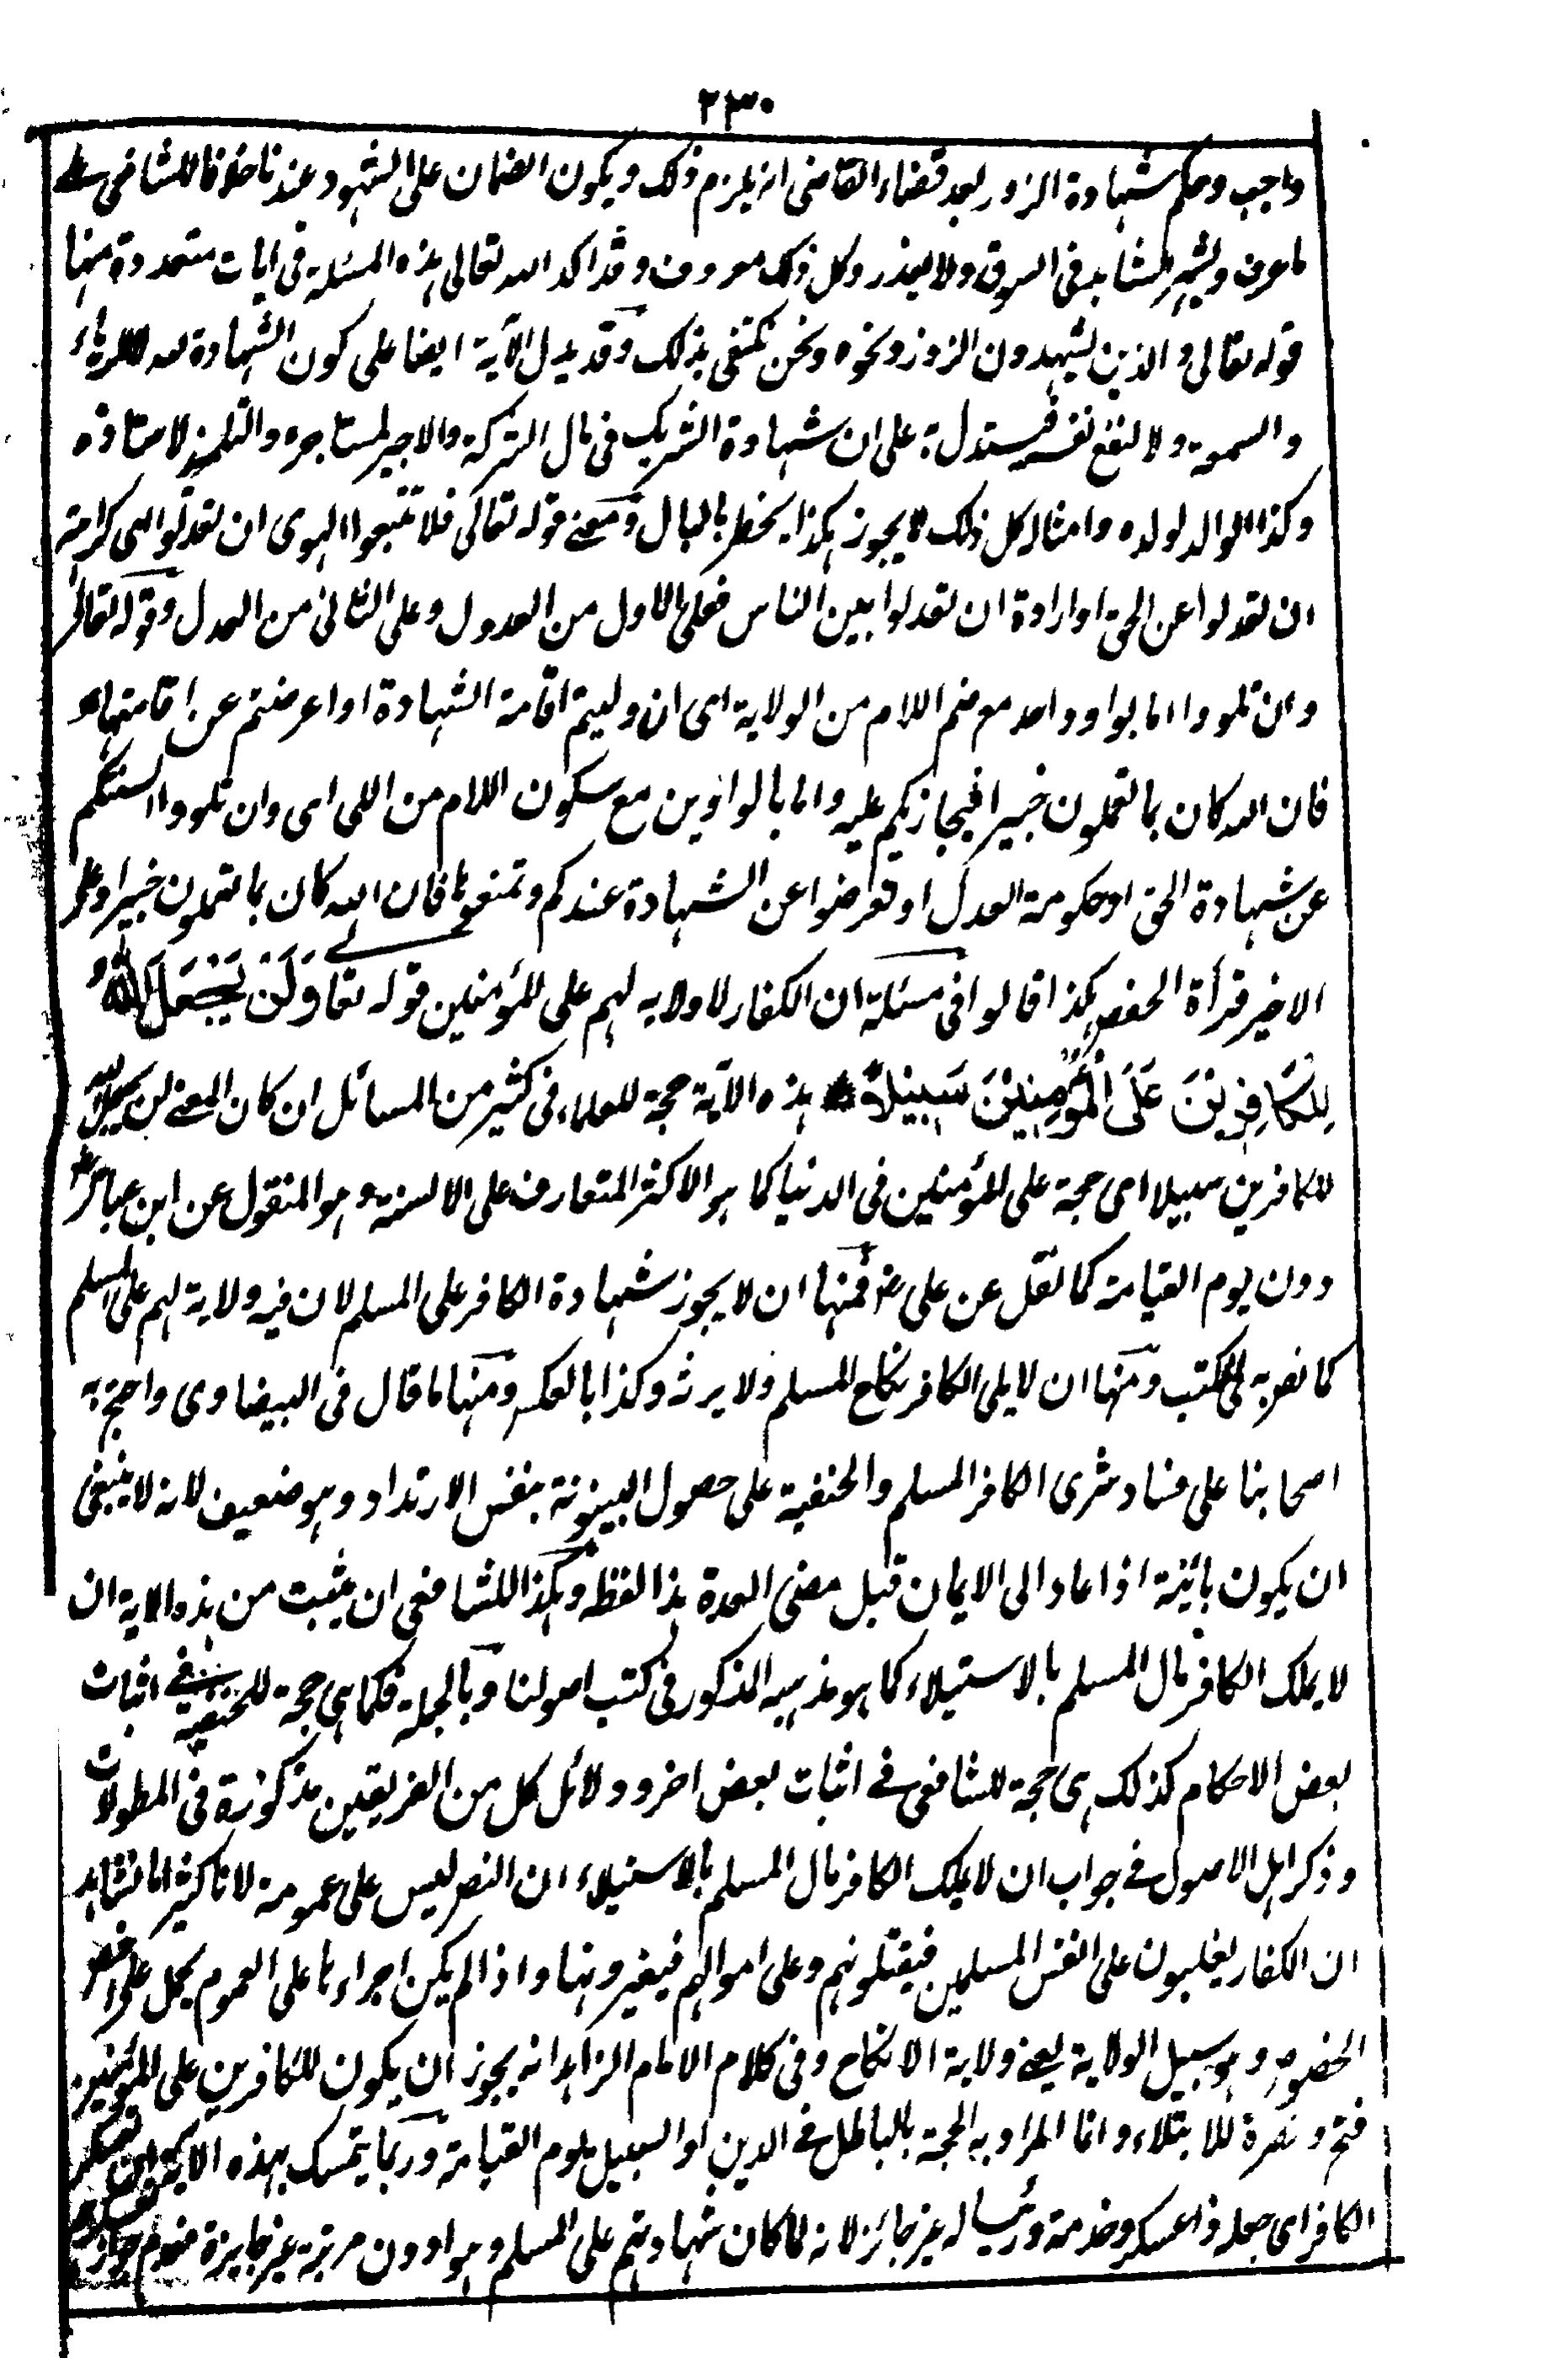 ٢٣٠
واجب وحكم شهادة الزور بعد قضاء القاضى انه يلزم ذلك ويكون الضمان على الشهود عندنا خلافا للشافعى على
ما عرف ويشهر لمشاہد فى السوق ولا يعذر وكل ذلك معروف وقد اكد الله تعالى ہذه المسئلة فى ايات متعددة منها
قوله تعالى والذين يشهدون الزور ونحوه ونحن نكتفى بذلك وقد يدل الآية ايضا على كون الشهادة لله لا للرياء
والسمعة ولا لنفع نفسه فيستدل به على ان شهادة الشريك فى مال الشركة والاجير لمستاجره والتلميذ لاستاذه
وكذا الوالد لولده وامثاله كل ذلك لا يجوز ہكذا يخطر بالبال ومعنے قوله تعالى فلا تتبعوا الہوى ان تعدلوا اى كراہة
ان تعدلوا عن الحق او ارادة ان تعدلوا بين الناس فعلى الاول من العدول وعلى الثانى من العدل وقوله تعالى
وان تلووا اما بواو واحد مع ضم اللام من الولاية اى ان وليتم اقامة الشهادة او اعرضتم عن اقامتها
فان الله كان بما تعملون خبيرا فيجازيكم عليه واما بالواوين مع سكون اللام من اللى اى وان تلووا السنتكم
عن شهادة الحق او حكومة العدل او تعرضوا عن الشهادة عندكم وتمنعوہا فان الله كان بما تعملون خبيرا وعلى
الاخير قرأة الحفص ہكذا قالوا فى مسئلة ان الكفار لا ولاية لہم على المؤمنين قوله تعا وَلَنْ يَّجْعَلَ اللّٰهُ
لِلْكَافِرِيْنَ عَلَى الْمُؤْمِنِيْنَ سَبِيْلًا ہذه الآية حجة للعلماء فى كثير من المسائل ان كان المعنے لن يجعل الله
للكافرين سبيلا اى حجة على المؤمنين فى الدنيا كما ہو الاكثر المتعارف على الالسنة وہو المنقول عن ابن عباس
دون يوم القيامة كما نقل عن على رض فمنها ان لا يجوز شهادة الكافر على المسلم لان فيه ولاية لہم على المسلم
كما نص به فى الكتب ومنها ان لا يلى الكافر نكاح المسلم ولا يرثه وكذا بالعكس ومنہا ما قال فى البيضاوى واحتج به
اصحابنا على فساد شرى الكافر المسلم والحنفية على حصول البينونة بنفس الارتداد وہو ضعيف لانه لا ينبغى
ان يكون بائنة اذا عاد الى الايمان قبل مضى العدة ہذا لفظه وہكذا للشافعى ان يثبت من ہذه الاية ان
لا يملك الكافر مال المسلم بالاستيلاء كما ہو مذہبه المذكور فى كتب اصولنا وبالجملة فكما ہى حجة للحنفية فے اثبات
بعض الاحكام كذلك ہى حجة للشافعى فے اثبات بعض اخر ودلائل كل من الفريقين مذكورة فى المطولات
وذكر اہل الاصول فے جواب ان لا يملك الكافر مال المسلم بالاستيلاء ان النص ليس على عمومه لانا كثيرا ما نشاہد
ان الكفار يغلبون على انفس المسلمين فيقتلونہم وعلى اموالہم فيغيرونہا واذا لم يكن اجراءہا على العموم يحمل على اخص
الخصوص وہو سبيل الولاية يعنے ولاية الانكاح وفى كلام الامام الزاہد انه يجوز ان يكون للكافرين على المؤمنين
فتح ونصرة للابتلاء وانما المراد به الحجة بالباطل فے الدين او السبيل يوم القيامة وربما يتمسك بہذه الاية
الكافر اى جعله ذا عسكر وخدمة وريسا له غير جائز لانه لما كان شہادتہم على المسلم وہو ادون مرتبة غير جايزة